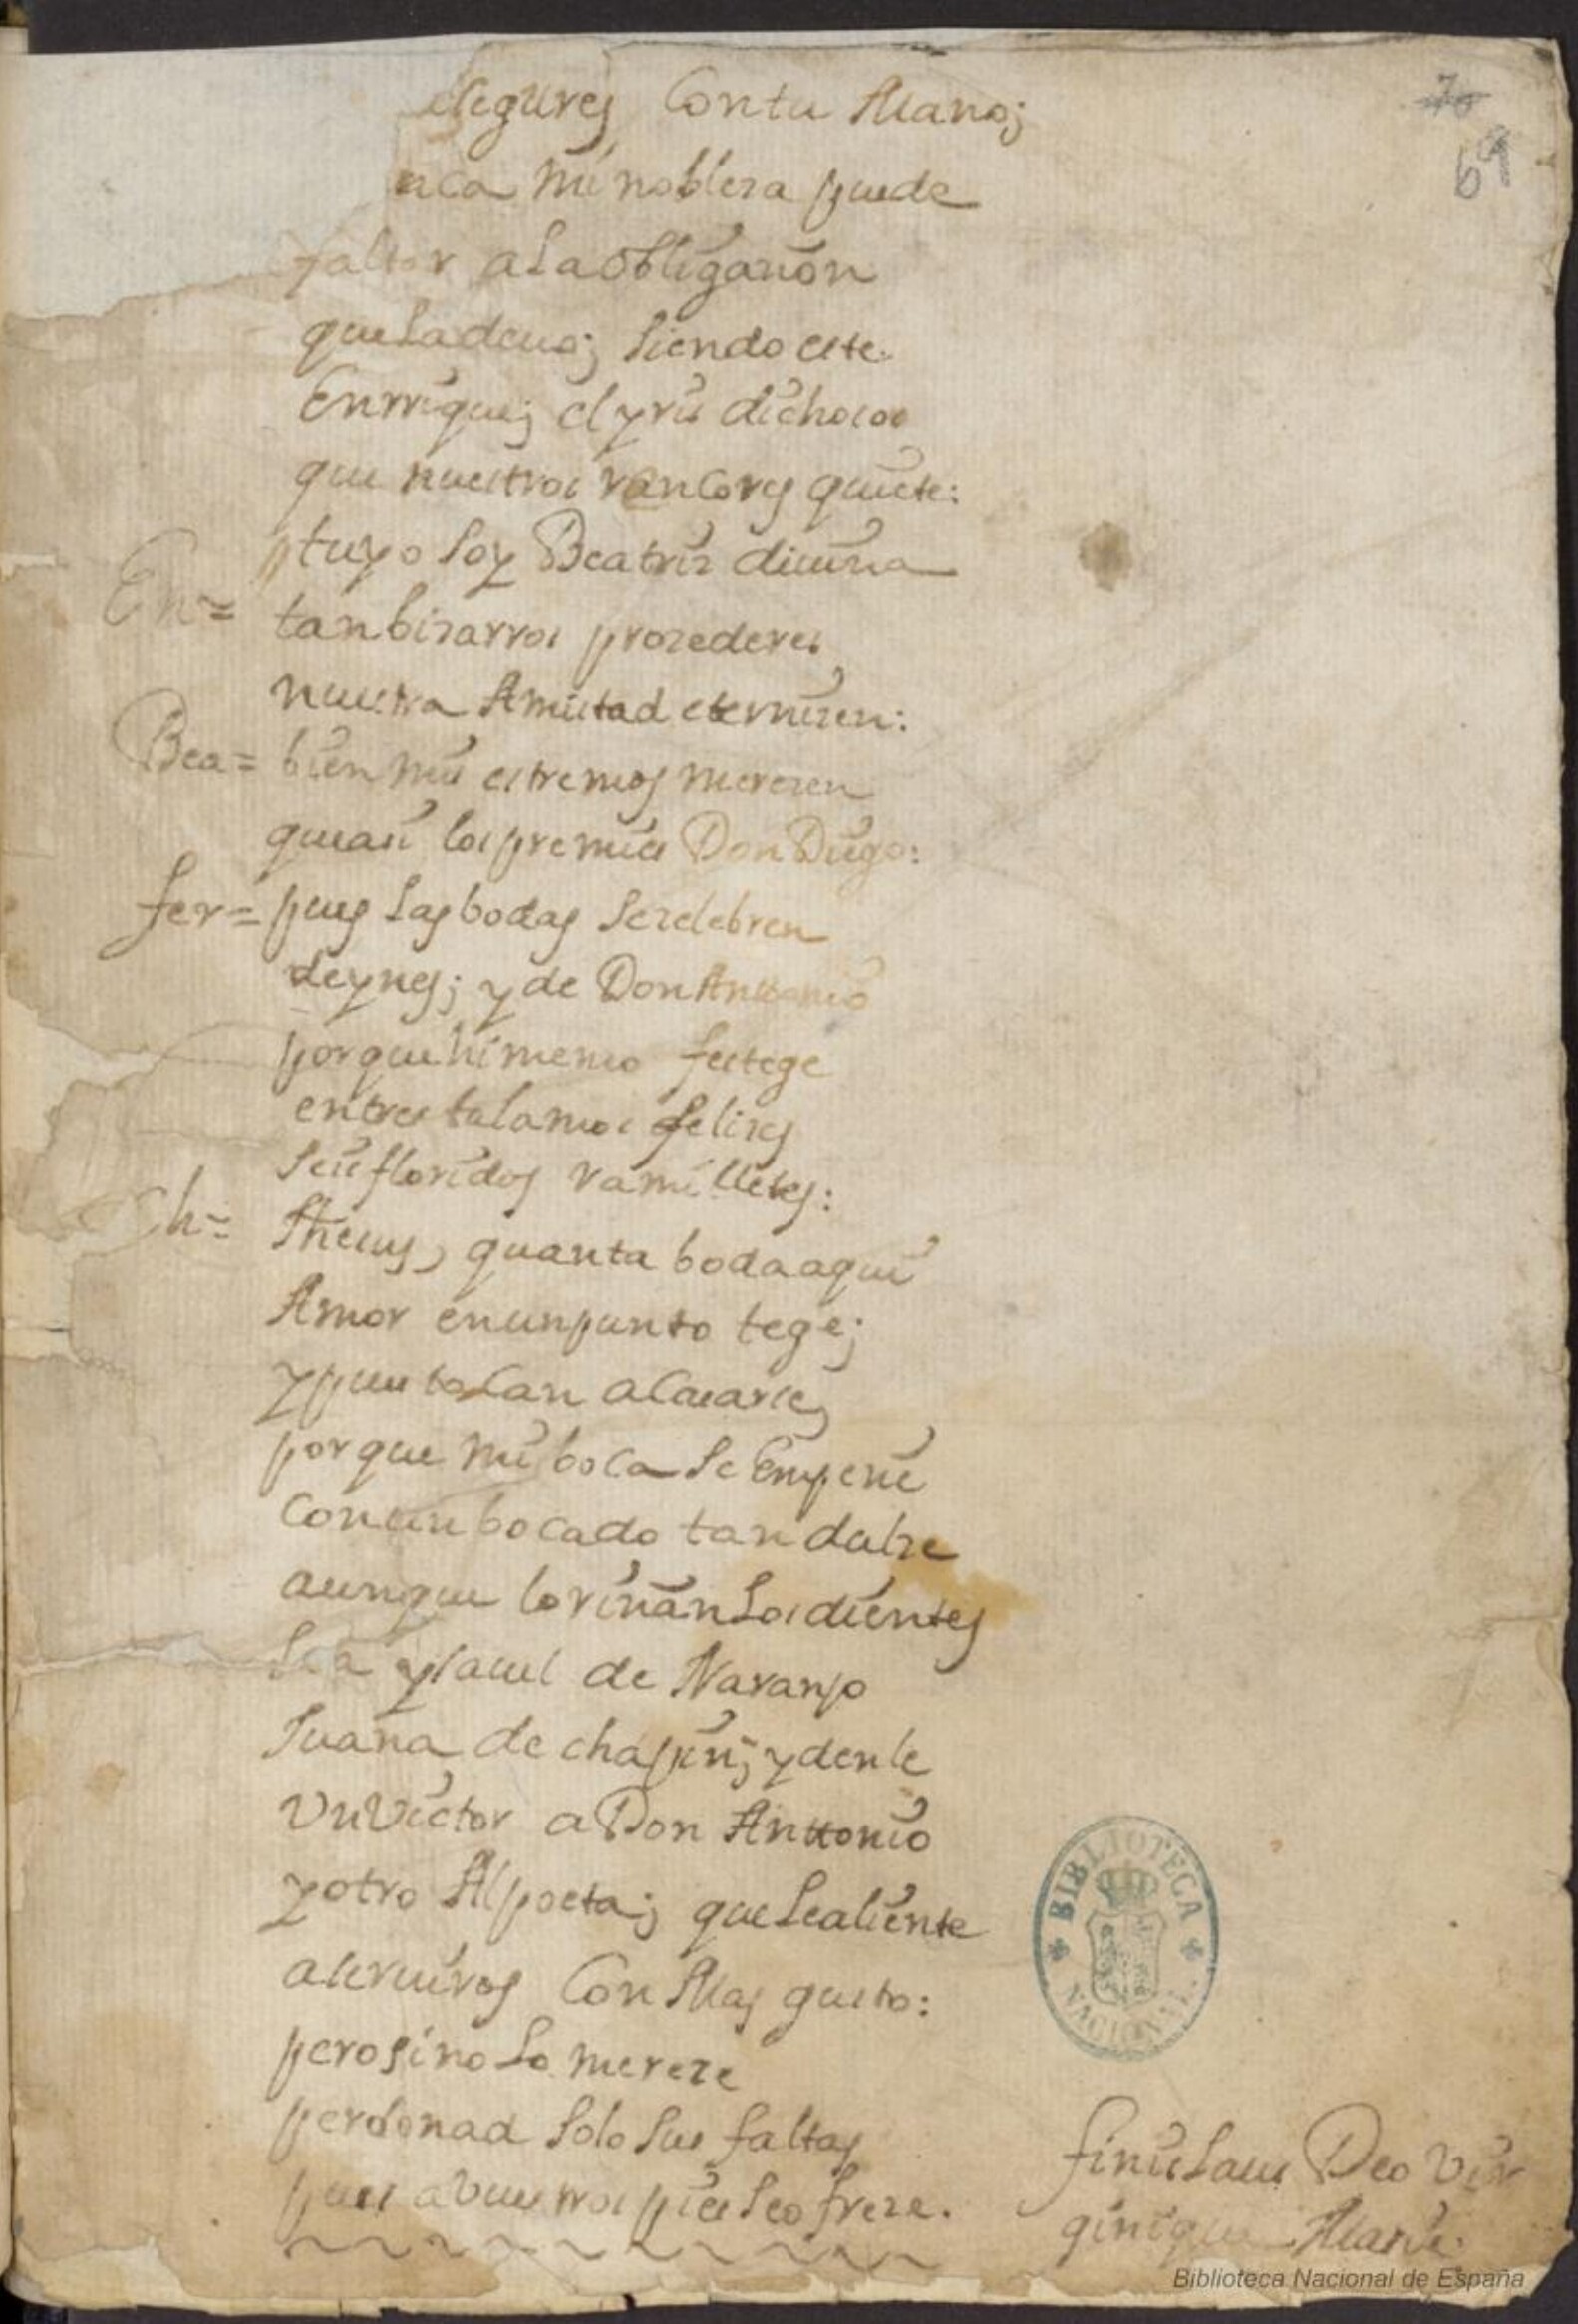 asegures Con tu Mano;
nca mi nobleza puede
faltar a la obligazion
que la deuo; siendo este
Enrrique; el yris dichoso
que nuestros rancores quiete:
tuyo soy Beatriz diuina
En= tan bizarros prozederes
nuestra Amistad eternizen:
Bea= bien mis estremos merezen
que asi los premies Don Diego:
fer= pues las bodas se zelebren
de ynes; y de Don Anttonio
porque himeneo festege
en tres talamos felizes
seis floridos ramilletes:
Ch= Jhesus, quanta boda aqui
Amor en un punto tege;
y pues tocan a casarse
porque mi boca se Empeñe
con un bocado tan dulze
aunque lo riñan los dientes
sea ysauel de Naranjo
Juana de chapin; y denle
Un Victor a Don Anttonio
y otro Al poeta; que le aliente
a seruiros Con Mas gusto:
pero si no lo mereze
perdonad solo sus faltas
pues a vuestros pies se ofreze.
finis Laus Deo Vir
ginique Marie.
70
69
BIBLIOTECA NACIONAL
Biblioteca Nacional de España